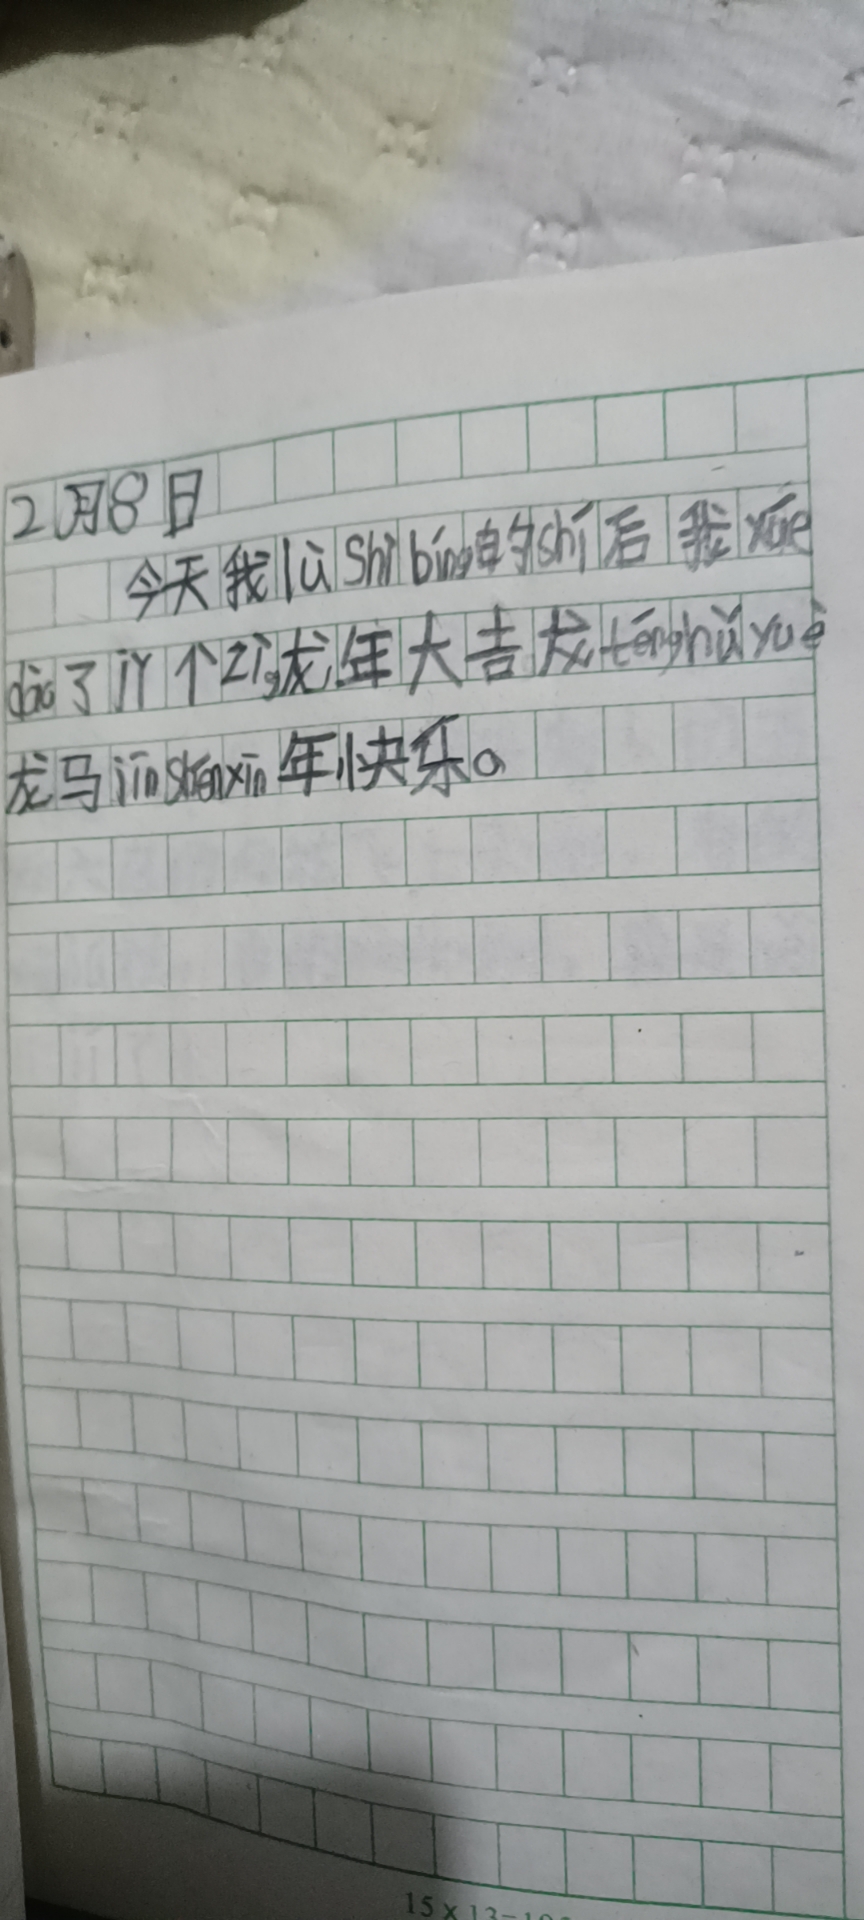 2月8日
今天我lù shì bíng的shí后我xüe
dào了jǐ个zì,龙年大吉龙téng hǔ yuè
龙马jīn shén xīn年快乐。
15×13=19